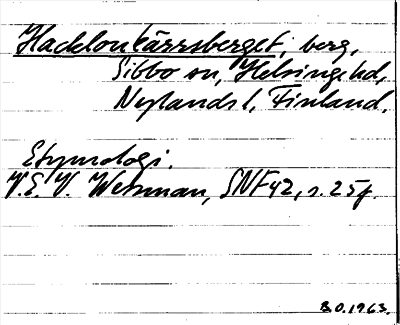 Hacklonkärrsberget, berg,
Sibbo sn, Helsinge hd,
Nylands l, Finland.
Etymologi.
V.E.V. Wessman, SNF 42, s. 25 f.
B.O. 1963.